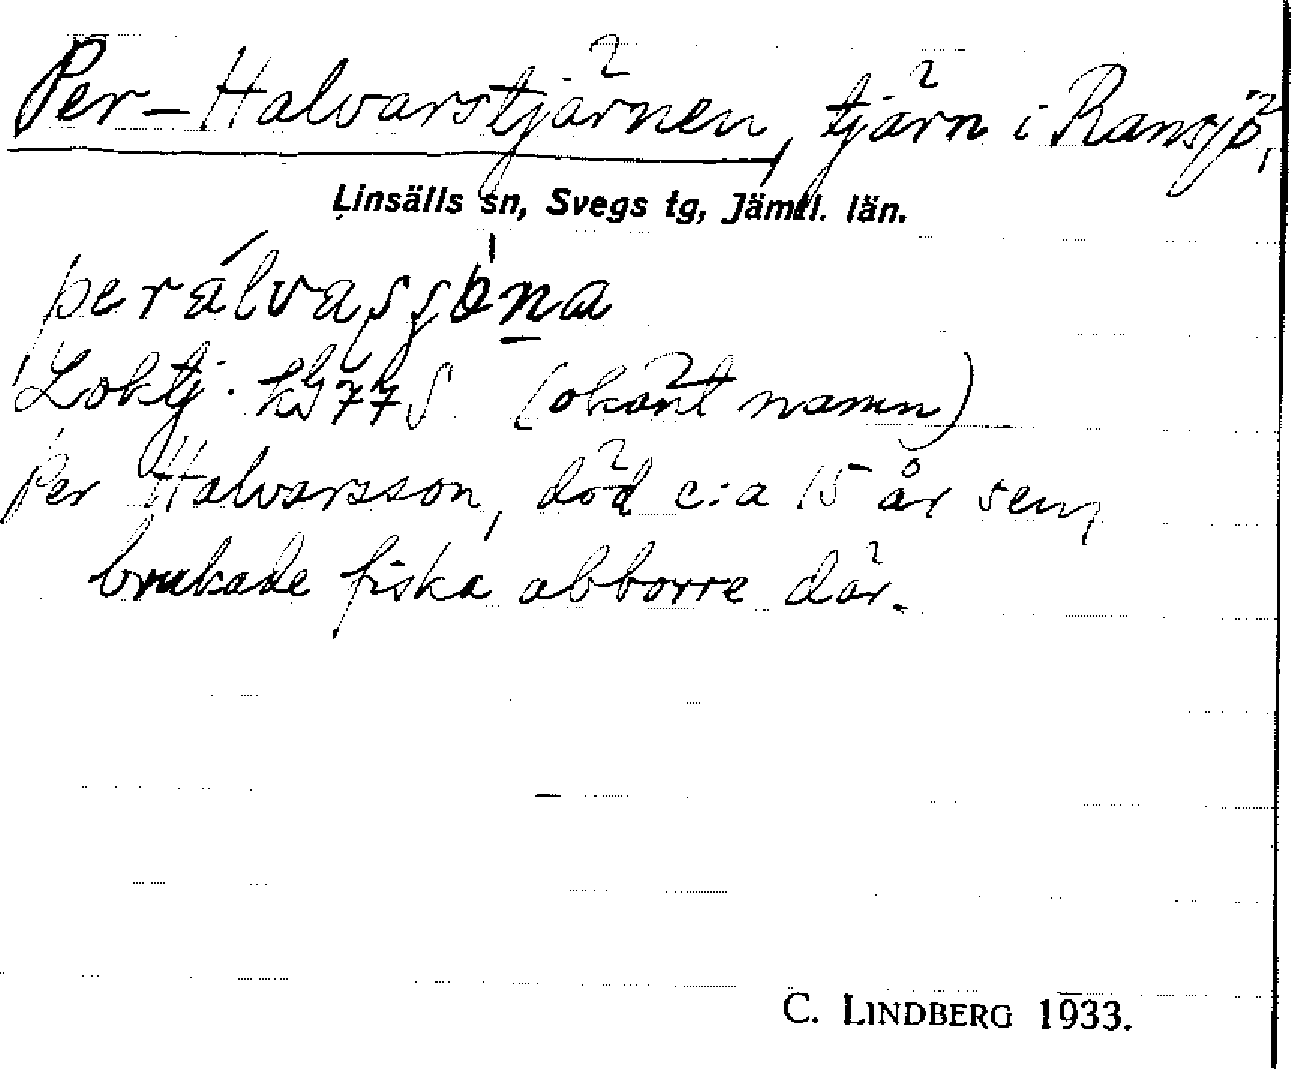 Per-Halvarstjärnen, tjärn i Ransjö,
Linsälls sn, Svegs tg, Jämtl. län.
Loktj. (okänt namn)
Per Halvarsson, död c:a 15 år sen,
brukade fiska abborre där.
C. LINDBERG 1933.